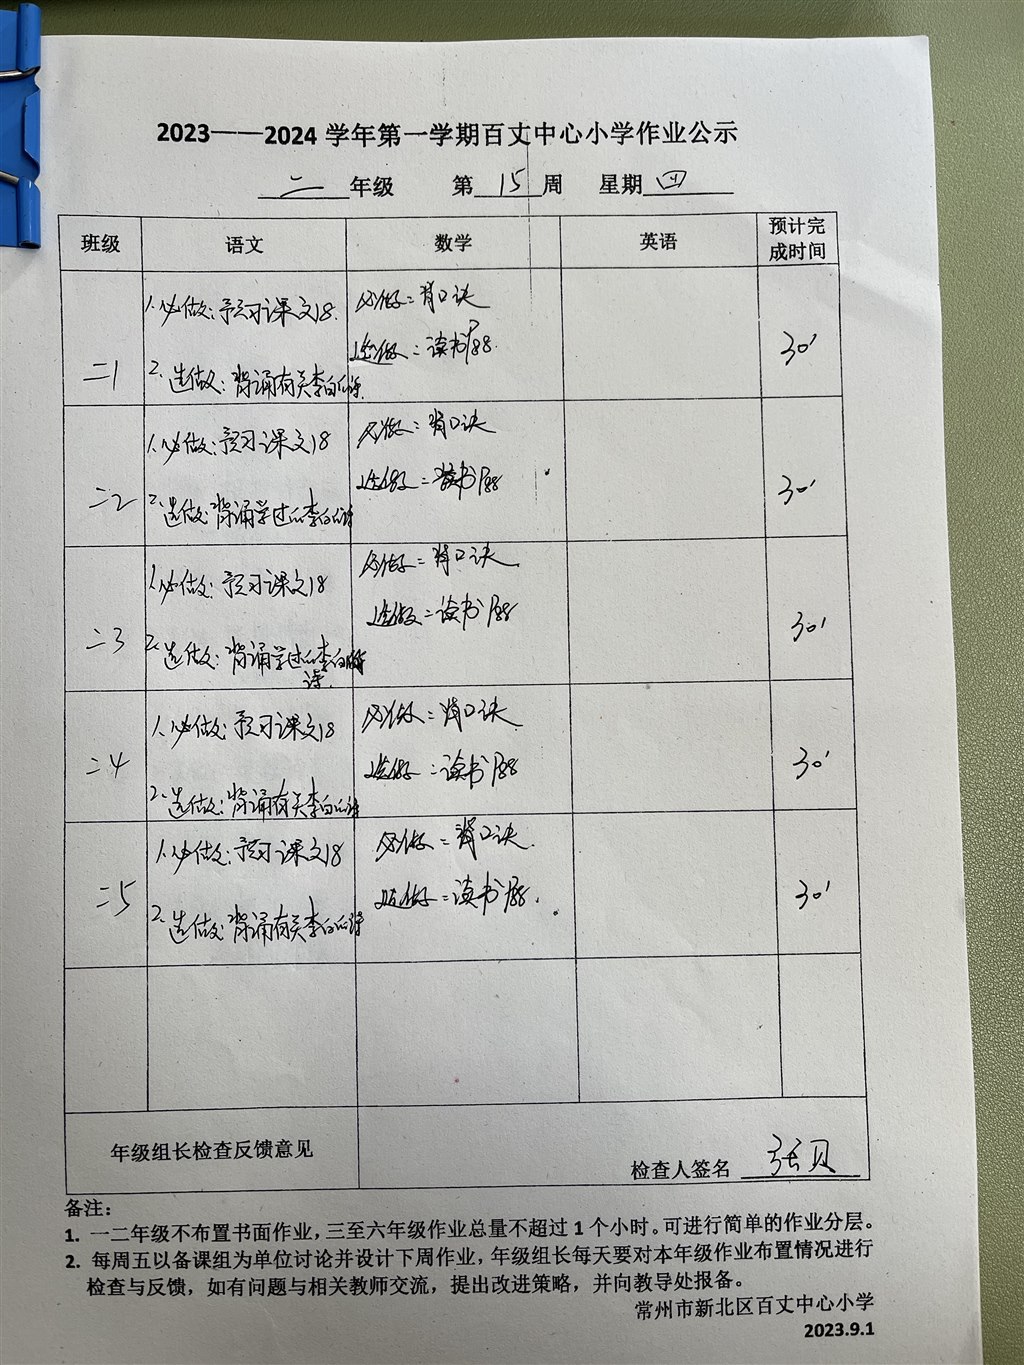 2023——2024 学年第一学期百丈中心小学作业公示
二 年级 第 15 周 星期 四
班级 语文 数学 英语 预计完成时间
二1
1.必做:预习课文18.
2.选做:背诵有关李白的诗.
必做:背口诀
选做:读书P88.
30'
二2
1.必做:预习课文18
2.选做:背诵学过的李白的诗
必做:背口诀
选做:读书P88
30'
二3
1.必做:预习课文18
2.选做:背诵学过的李白的
诗.
必做:背口诀
选做:读书P88
30'
二4
1.必做:预习课文18
2.选做:背诵有关李白的诗
必做:背口诀
选做:读书P88
30'
二5
1.必做:预习课文18
2.选做:背诵有关李白的诗
必做:背口诀.
选做:读书P88.
30'
年级组长检查反馈意见
检查人签名 张贝
备注:
1. 一二年级不布置书面作业,三至六年级作业总量不超过 1 个小时。可进行简单的作业分层。
2. 每周五以备课组为单位讨论并设计下周作业,年级组长每天要对本年级作业布置情况进行
检查与反馈,如有问题与相关教师交流,提出改进策略,并向教导处报备。
常州市新北区百丈中心小学
2023.9.1